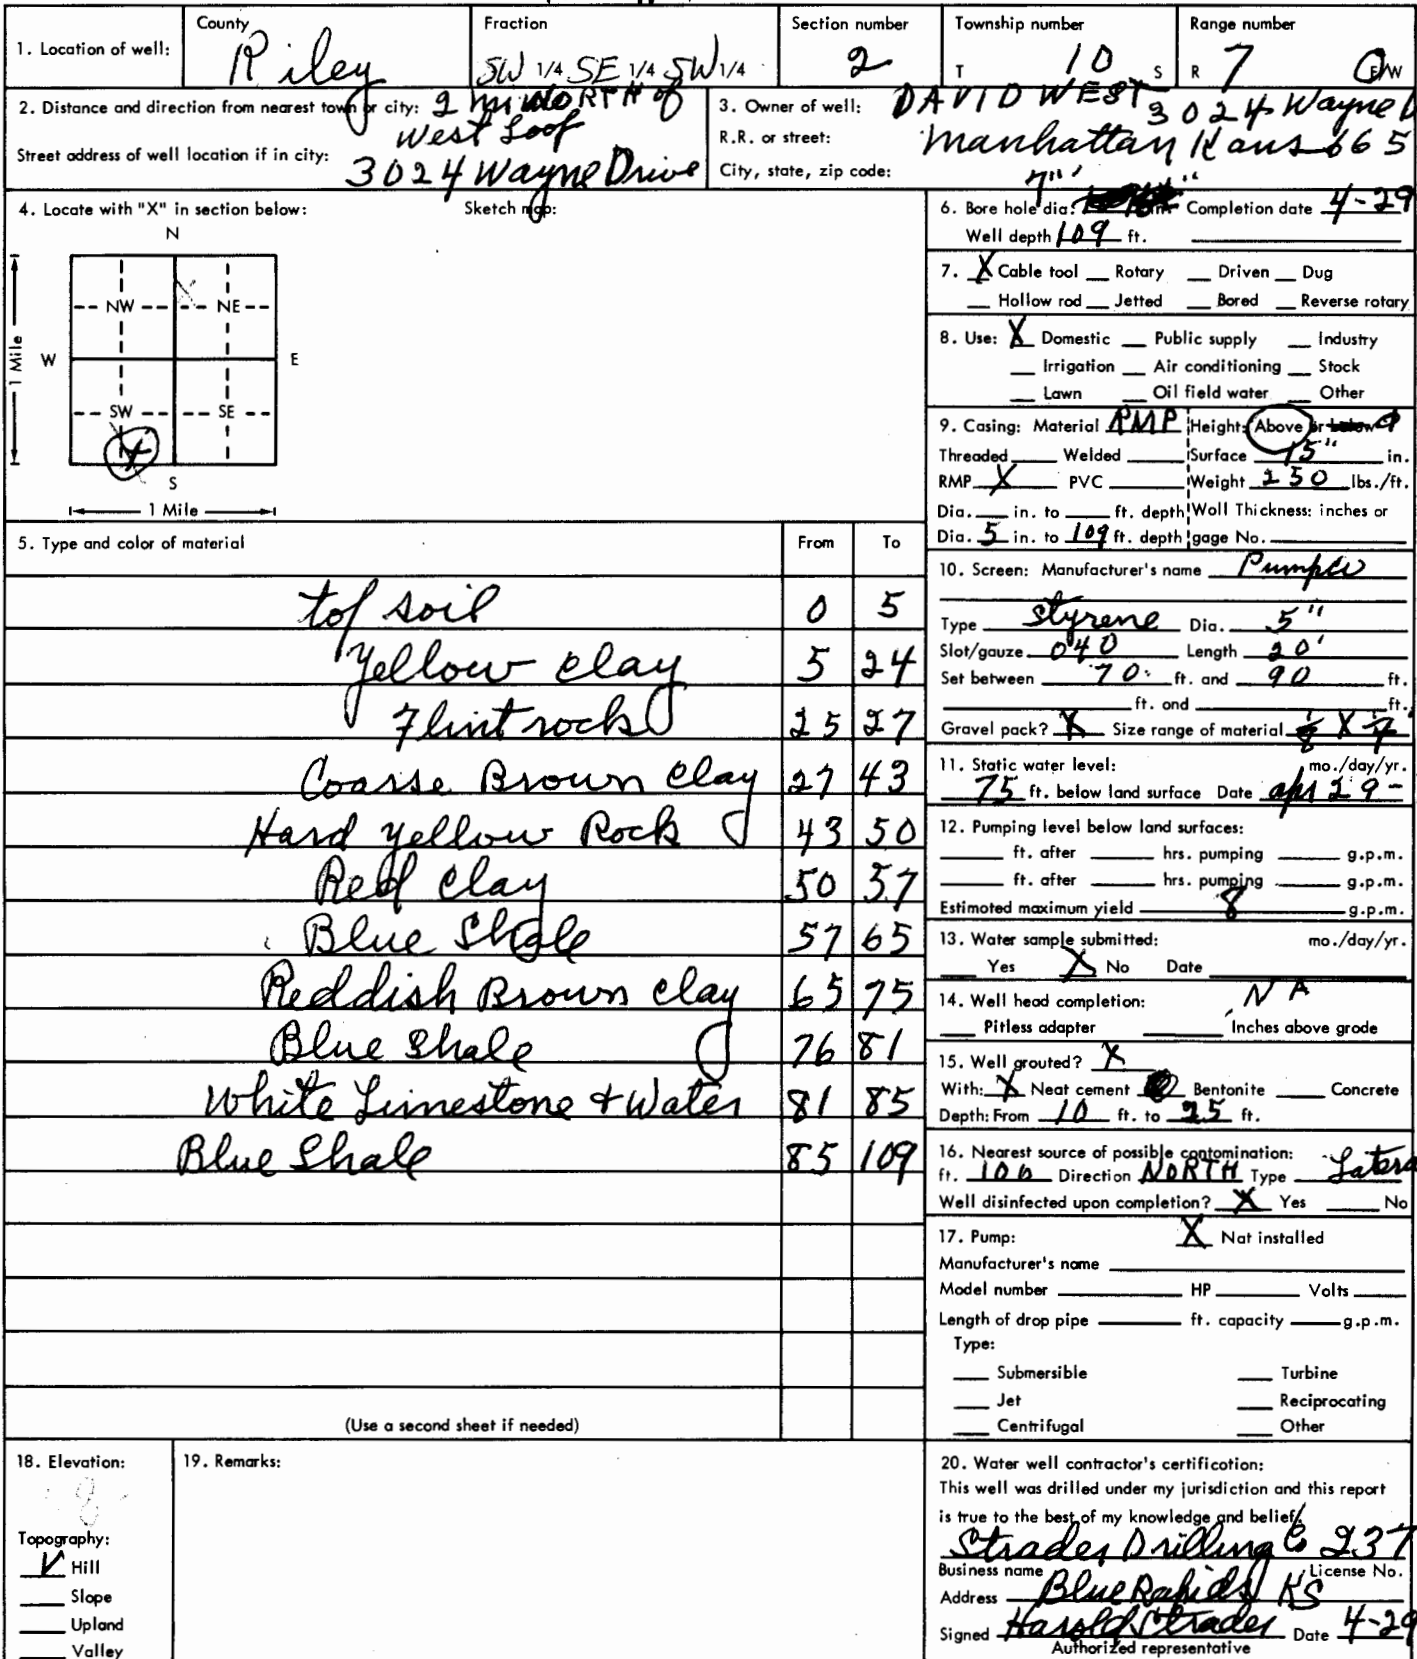 County Fraction Section number Township number Range number
1. Location of well: Riley SW 1/4 SE 1/4 SW 1/4 2 T 10 S R 7 E/W
2. Distance and direction from nearest town or city: 2 mi NORTH of
West Loop
Street address of well location if in city:
3024 Wayne Drive
3. Owner of well: DAVID WEST
3024 Wayne D
R.R. or street: Manhattan Kans 665
City, state, zip code:
4. Locate with "X" in section below: Sketch map:
N
NW NE
W E
1 Mile
SW SE
X
S
1 Mile
5. Type and color of material From To
top soil 0 5
Yellow clay 5 24
Flint rock 25 27
Coarse Brown Clay 27 43
Hard yellow Rock 43 50
Red Clay 50 57
Blue Shale 57 65
Reddish Brown clay 65 75
Blue Shale 76 81
White Limestone + Water 81 85
Blue Shale 85 109
(Use a second sheet if needed)
6. Bore hole dia. 7" Completion date 4-29
Well depth 109 ft.
7. X Cable tool Rotary Driven Dug
Hollow rod Jetted Bored Reverse rotary
8. Use: X Domestic Public supply Industry
Irrigation Air conditioning Stock
Lawn Oil field water Other
9. Casing: Material RMP Height: Above or below
Threaded Welded Surface 15" in.
RMP X PVC Weight 250 lbs./ft.
Dia. in. to ft. depth Wall Thickness: inches or
Dia. 5 in. to 109 ft. depth gage No.
10. Screen: Manufacturer's name Pumpco
Type Styrene Dia. 5"
Slot/gauze 040 Length 20'
Set between 70 ft. and 90 ft.
ft. and ft.
Gravel pack? X Size range of material X
11. Static water level: mo./day/yr.
75 ft. below land surface Date apr 29-
12. Pumping level below land surfaces:
ft. after hrs. pumping g.p.m.
ft. after hrs. pumping g.p.m.
Estimated maximum yield 8 g.p.m.
13. Water sample submitted: mo./day/yr.
Yes X No Date
14. Well head completion: NA
Pitless adapter Inches above grade
15. Well grouted? X
With: X Neat cement Bentonite Concrete
Depth: From 10 ft. to 25 ft.
16. Nearest source of possible contamination:
ft. 100 Direction NORTH Type Latera
Well disinfected upon completion? X Yes No
17. Pump: X Not installed
Manufacturer's name
Model number HP Volts
Length of drop pipe ft. capacity g.p.m.
Type:
Submersible Turbine
Jet Reciprocating
Centrifugal Other
18. Elevation:
Topography:
✓ Hill
Slope
Upland
Valley
19. Remarks:
20. Water well contractor's certification:
This well was drilled under my jurisdiction and this report
is true to the best of my knowledge and belief.
Strader Drilling Co 237
Business name License No.
Address Blue Rapids KS
Signed Harold Strader Date 4-29
Authorized representative